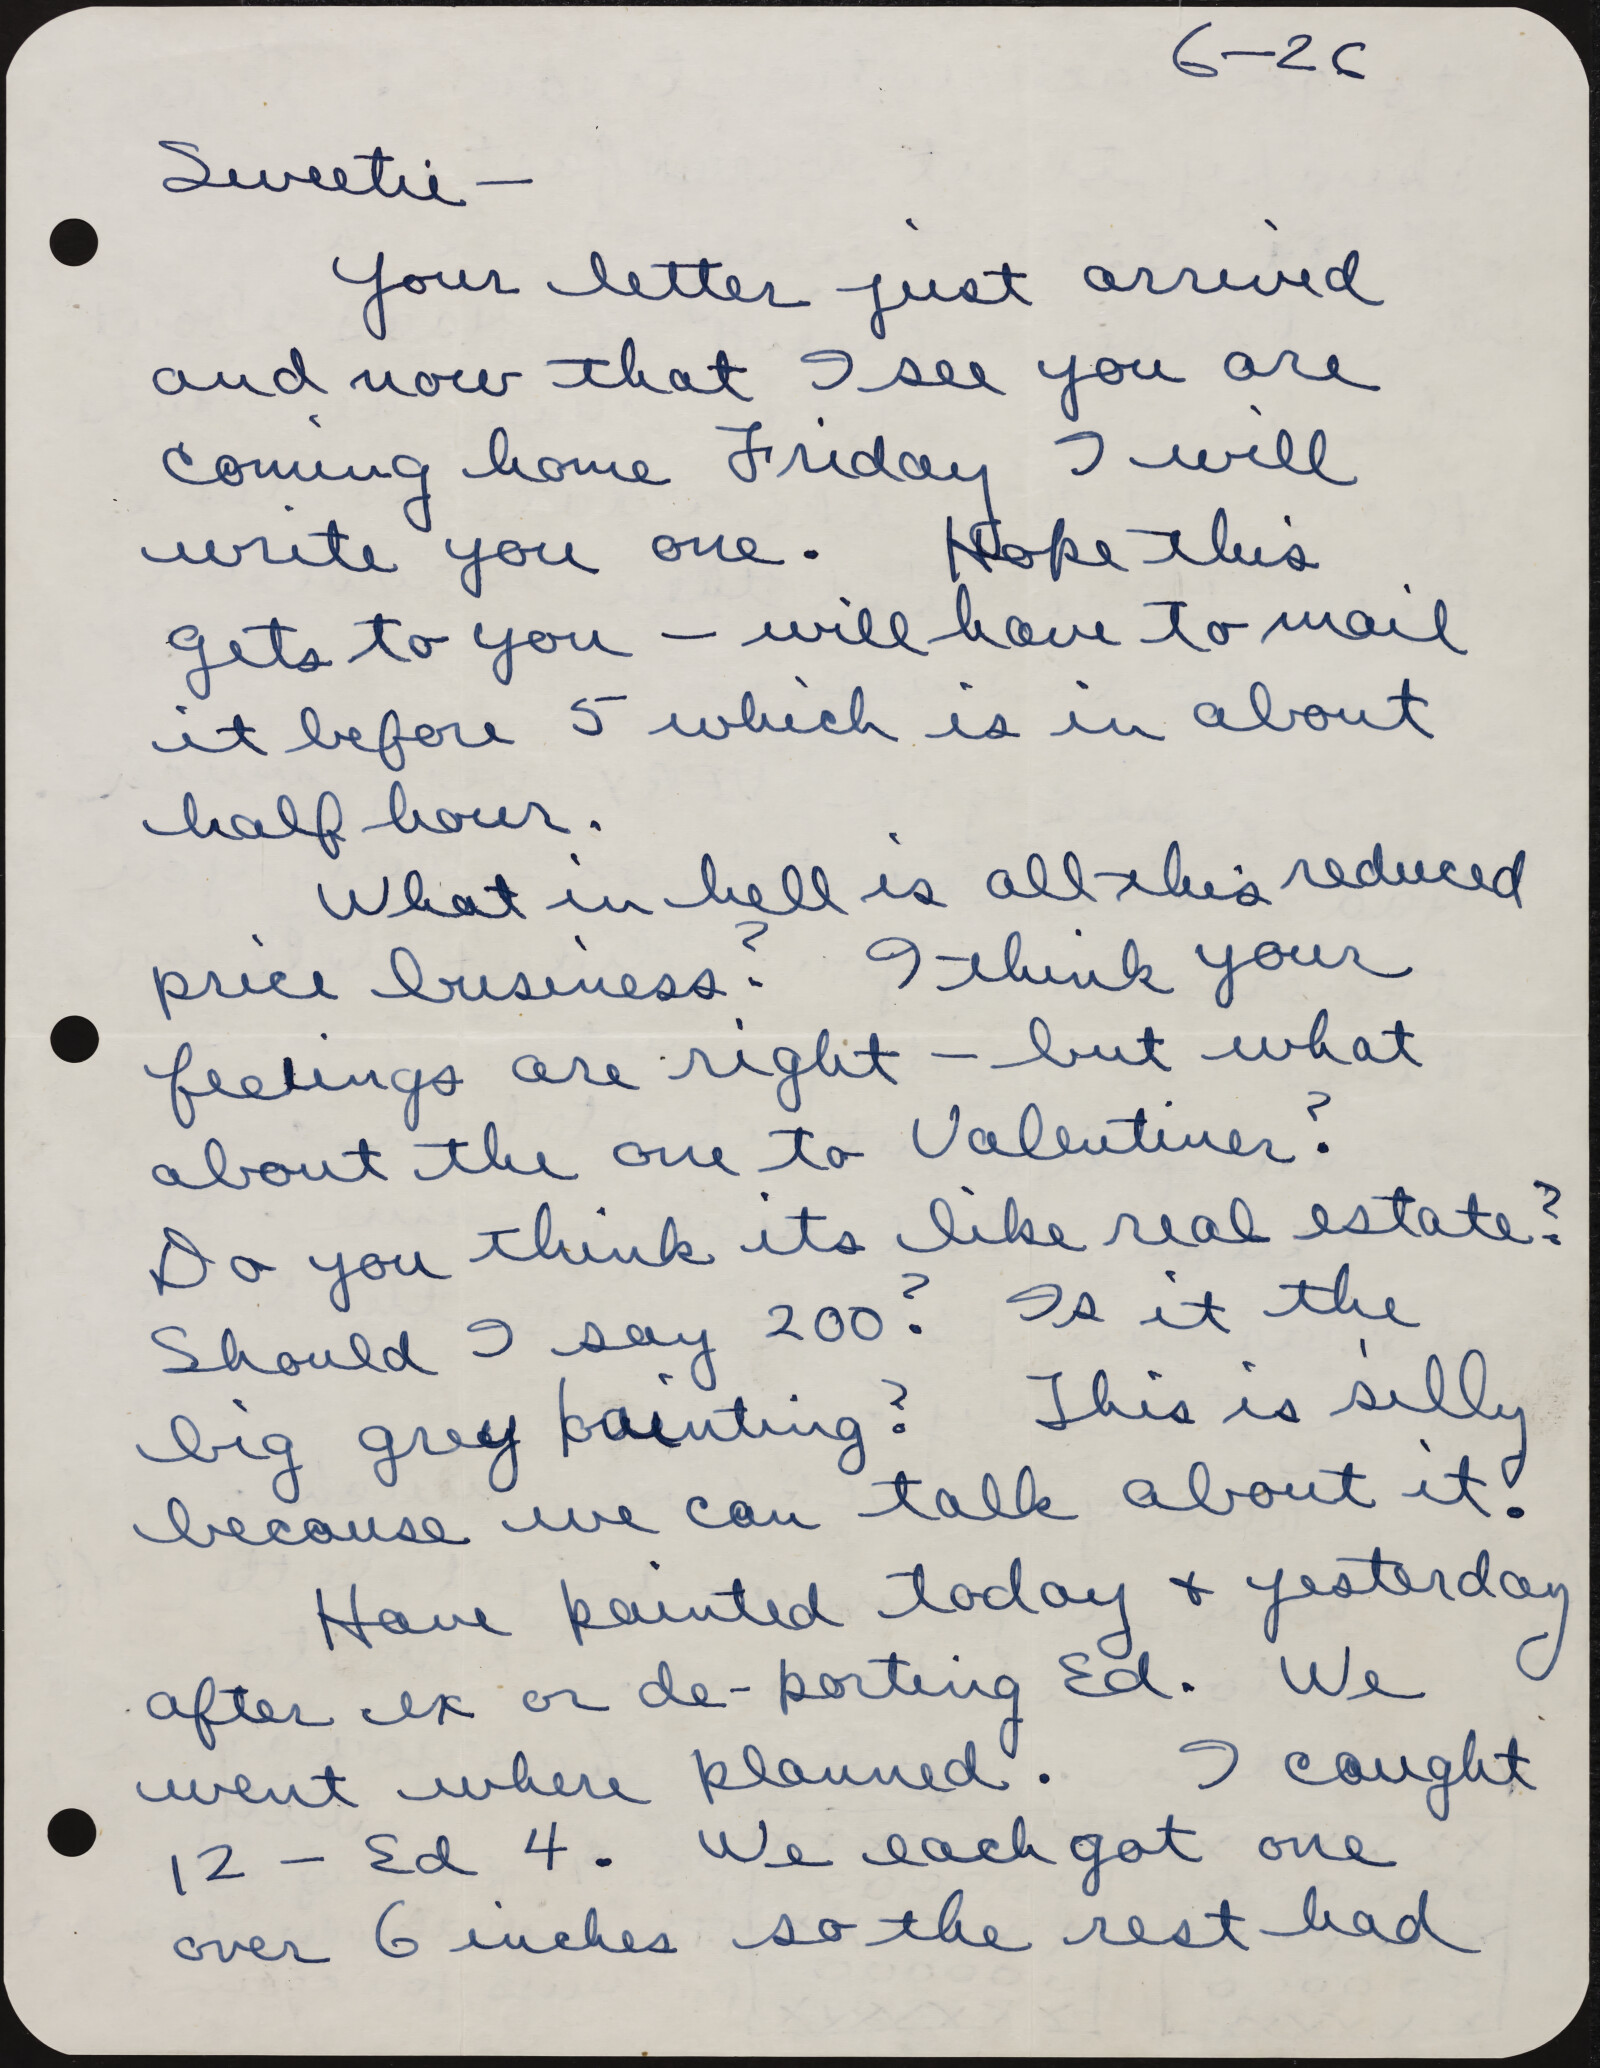 6-26
Sweetie —
Your letter just arrived
and now that I see you are
coming home Friday I will
write you one. Hope this
gets to you — will have to mail
it before 5 which is in about
half hour.
What in hell is all this reduced
price business? I think your
feelings are right — but what
about the one to Valentiner?
Do you think its like real estate?
Should I say 200? Is it the
big grey painting? This is silly
because we can talk about it.
Have painted today & yesterday
after ex or de-porting Ed. We
went where planned. I caught
12 — Ed 4. We each got one
over 6 inches so the rest had